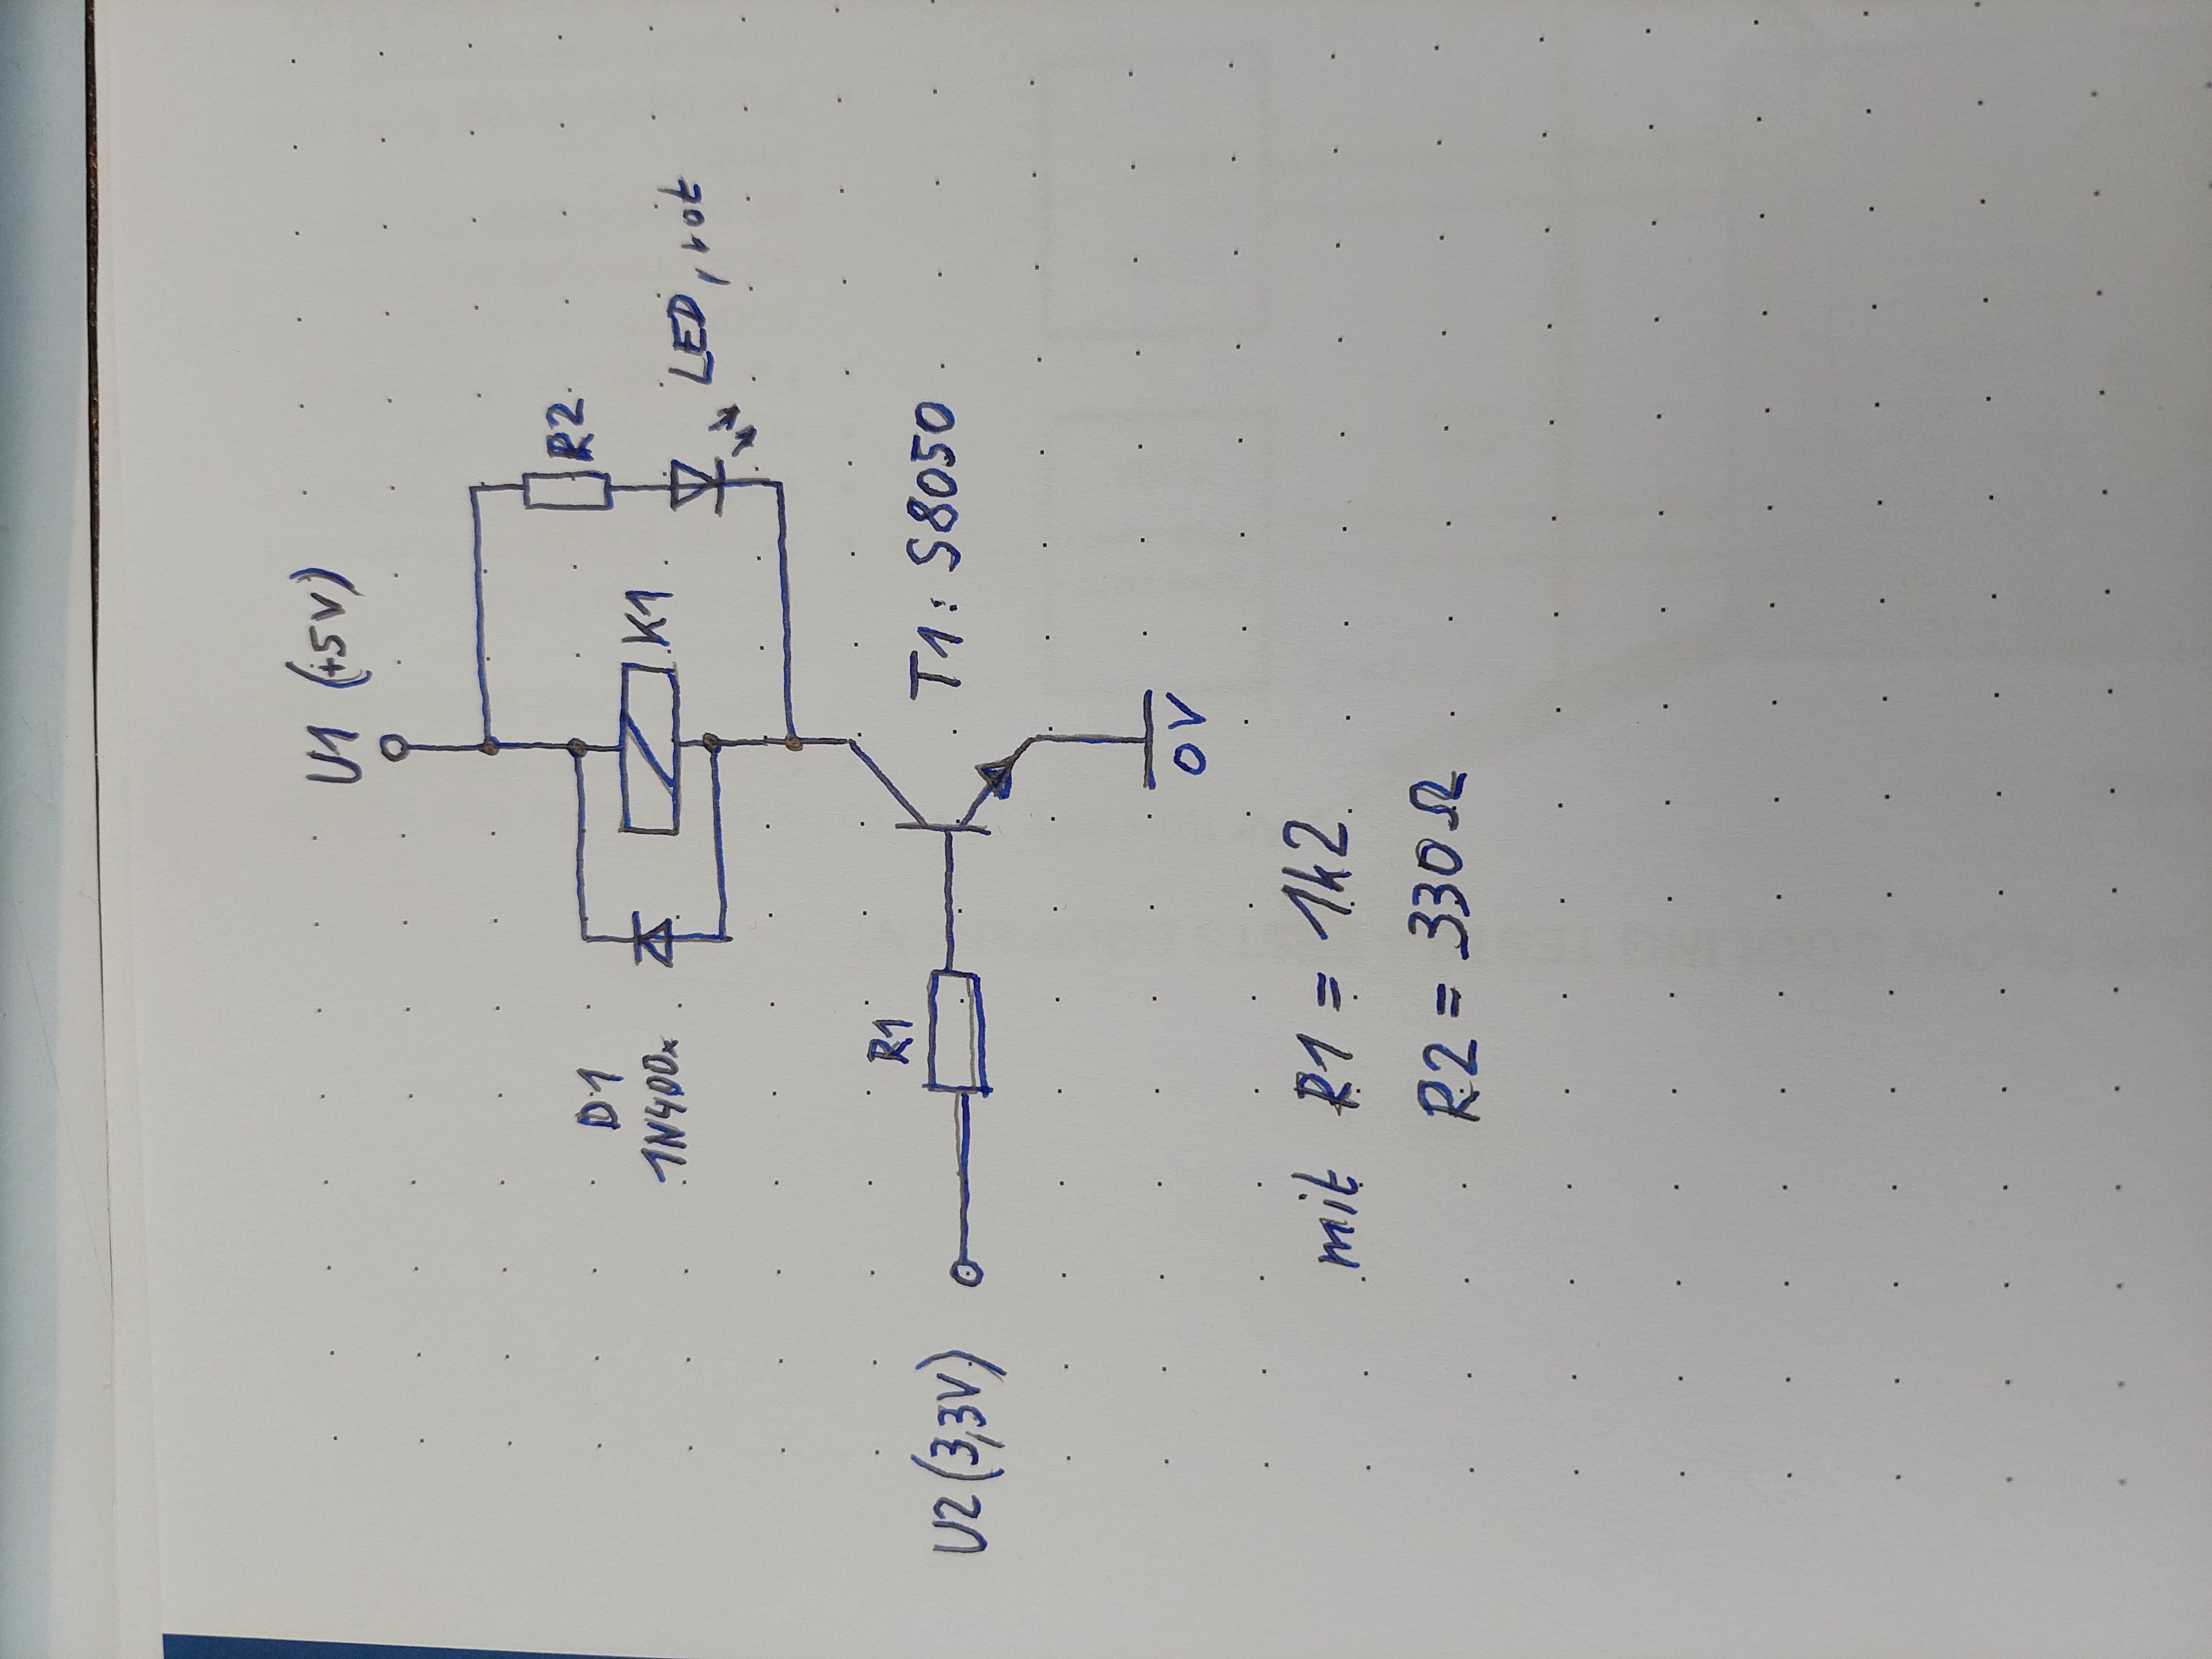 U1 (+5V)
R2
D1
1N400x
K1
LED, rot
R1
U2 (3,3V)
T1: S8050
0V
mit R1 = 1k2
R2 = 330Ω